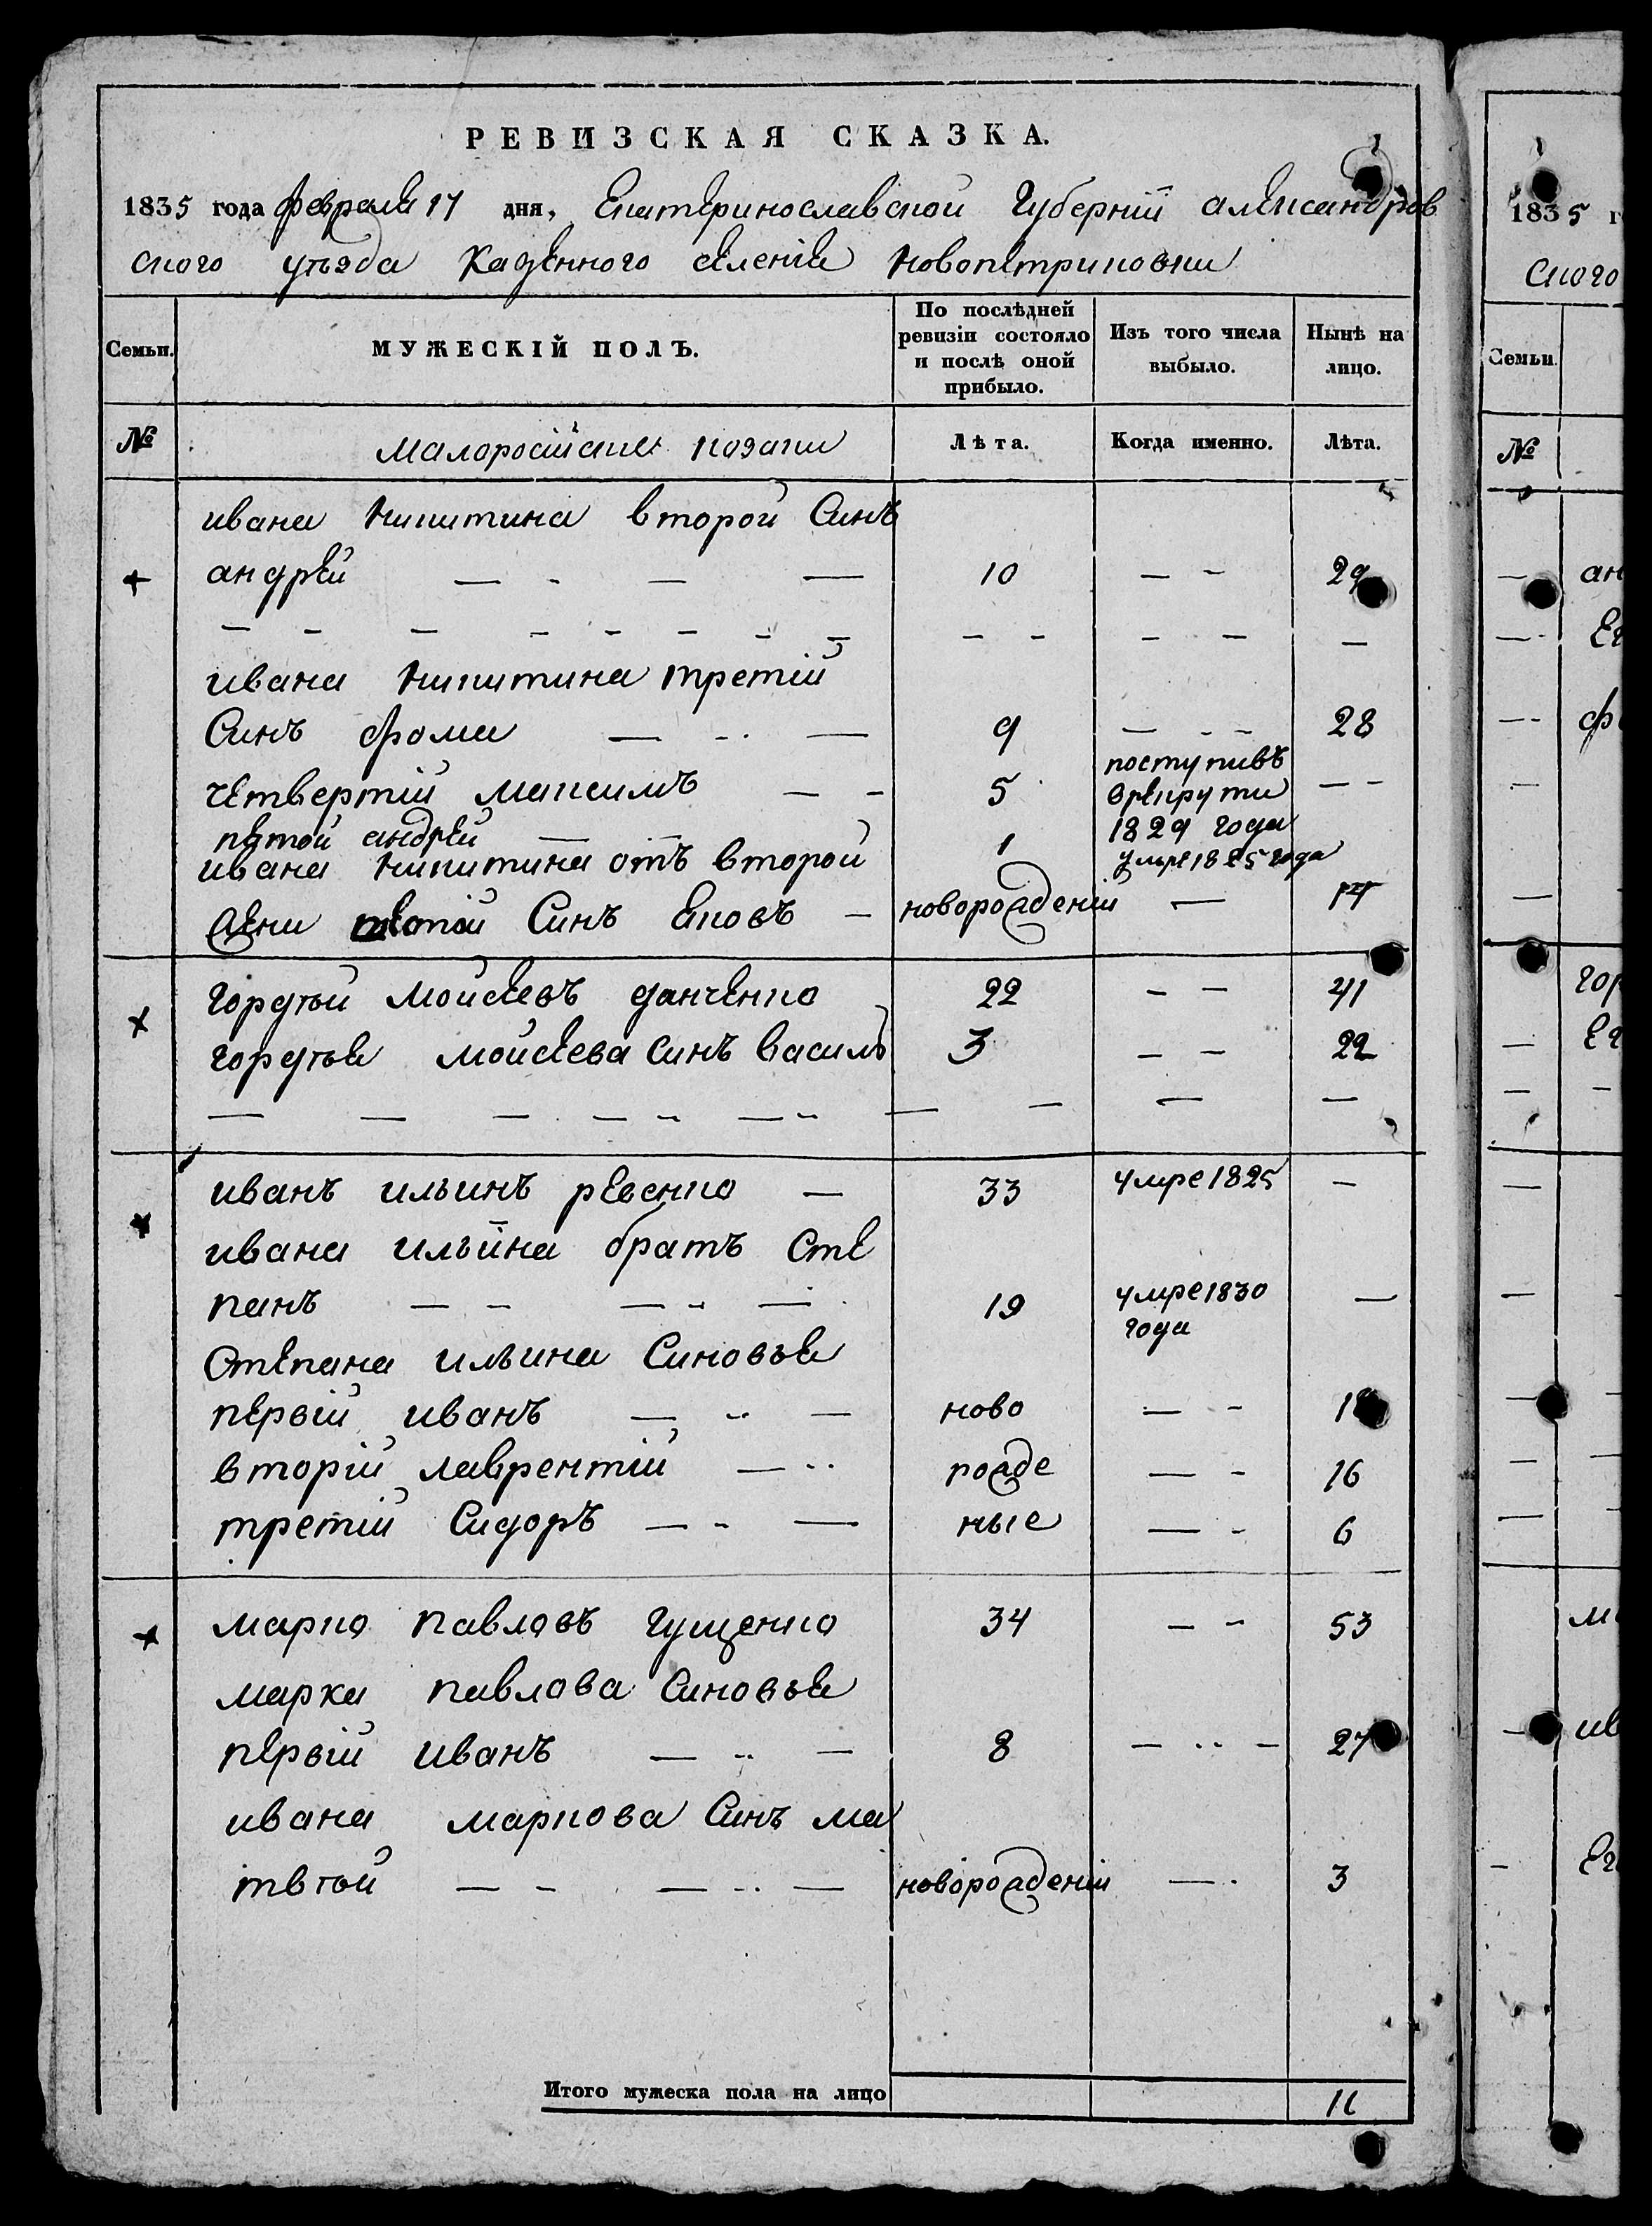 РЕВИЗСКАЯ СКАЗКА.
1835 года февраля 17 дня, Екатеринославской Губернїи александров
ского уѣзда Казенного селенїя Новопетриковки
Семьи. МУЖЕСКІЙ ПОЛЪ. По послѣдней ревизіи состояло и послѣ оной прибыло. Изъ того числа выбыло. Нынѣ на лицо.
№ малоросїйскіе козаки Лѣта. Когда именно. Лѣта.
ивана Никитина второй Синъ
андрей — - — — 10 — - 29
— - — - - - - - — - — - —
ивана Никитина третїй
Синъ фома — - - — 9 — - - 28
четвертїй максимъ — - 5 поступивъ врекруты 1829 года — -
пятой андрей — — 1 умре 1825 года
ивана Никитина отъ второй
жени Синъ яковъ — новорожденїй — 14
гордѣй Моисеевъ данченко 22 — - 41
гордѣя моисеева синъ василь 3 — - 22
— — — - — - — - — — — —
иванъ ильинъ ревенко — 33 умре 1825 —
ивана ильина братъ Сте
панъ — - — - — 19 умре 1830 года —
Степана ильина Синовья
первїй иванъ — - — ново — - 1
вторїй лаврентїй — - - рожде — - 16
третїй Сидоръ — - — ные — - 6
марко павловъ гущенко 34 — - 53
марка павлова Синовья
первїй иванъ — - — 8 — - - — 27
ивана маркова Синъ ма
твѣй — - — - — новорожденїй — - 3
Итого мужеска пола на лицо 11
1835 г
ского
Семьи
№